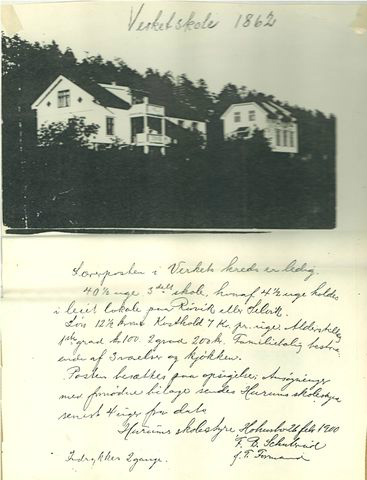 Verket skole 1862
Lærerposten i Verkets kreds er ledig.
40½ uge 3delt skole, hvoraf 4½ uge holdes
i leiet lokale paa Rövik eller
Løn 12½ kr. Kosthold 7 kr. pr. uge. Alderstillæg
1ste grad kr. 100. 2 grad 200 kr. Familiebolig bestaa-
ende af 3 værelser og kjøkken.
Posten besættes paa opsigelse. Ansøgninger
med fornödne bilage sendes Hurums skolestyre
senest 4 uger fra dato
Hurums skolestyre 1900
Indrykkes 2 gange.